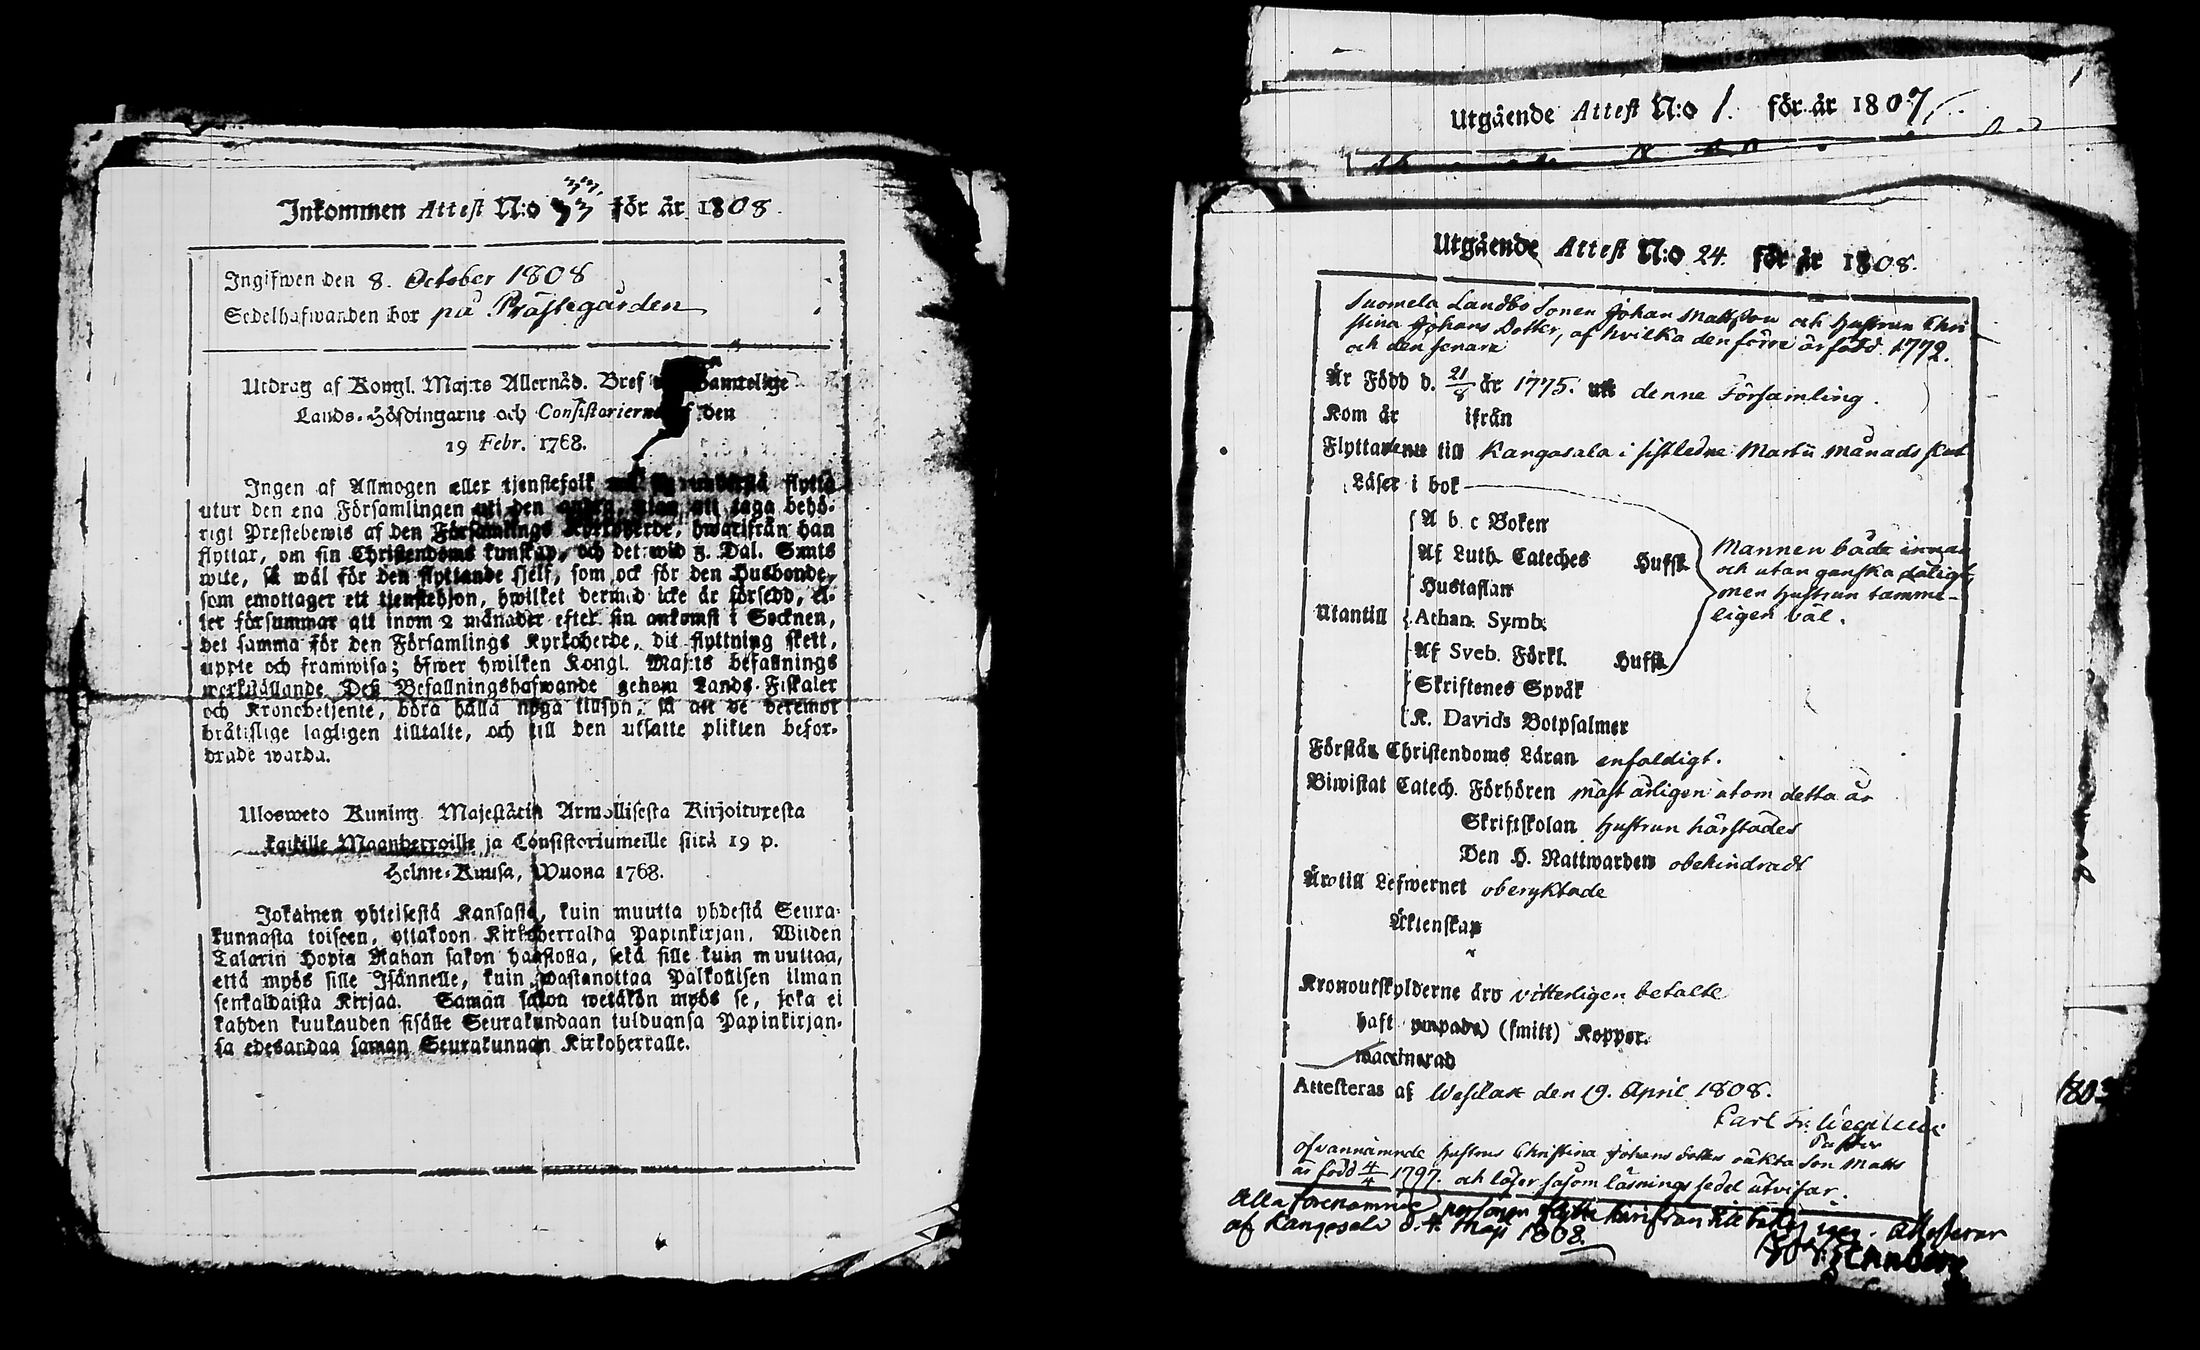 Inkommen Attest N:o 33 för år 1808.
Ingifwen den 8. October 1808
Sedelhafwanden bor på Prästegården
Utdrag af Kongl. Maj:ts Allernåd. Bref samtelige
Lands-Höfdingarne och Consistorierne den
19 Febr. 1768.
Ingen af Allmogen eller tjenstefolk flytta
utur den ena Församlingen uti den andra, utan att taga behö-
rigt Prestebewis af den Församlings Kyrkoherde, hwarifrån han
flyttar, om sin Christendoms kunskap, och det wid 3. Dal. S:mts
wite, så wäl för den flyttande sjelf, som ock för den Husbonde,
som emottager ett tjenstehjon, hwilket dermed icke är försedd, el-
ler försummar att inom 2 månader efter sin ankomst i Socknen,
det samma för den Församlings Kyrkoherde, dit flyttning skett,
uppte och framwisa; öfwer hwilken Kongl. Maj:ts befallnings
werkställande Deß Befallningshafwande genom Lands-Fiskaler
och Kronobetjente, böra hålla noga tillsyn, så att de deremot
bråtislige lagligen tilltalte, och till den utsatte plikten befor-
drade warda.
Ulosweto Kuning. Majestätin Armollisesta Kirjoituxesta
kaikille Maanherroille ja Consistoriumeille siitä 19 p.
Helme-Kuusa, Wuona 1768.
Jokainen yhteisestä Kansasta, kuin muutta yhdestä Seura-
kunnasta toiseen, ottakoon Kirkoherralda Papinkirjan. Wiiden
Talarin Hopia Rahan sakon haastolla, sekä sille kuin muuttaa,
että myös sille Isännelle, kuin wastanottaa Palkollisen ilman
senkaldaista Kirjaa. Saman sakon wetäkön myös se, joka ei
kahden kuukauden sisälle Seurakundaan tulduansa Papinkirjan-
sa edesandaa saman Seurakunnan Kirkoherralle.
Utgående Attest N:o 1. för år 1807,
Utgående Attest N:o 24. för år 1808.
Suomela Landbo Sonen Johan Mattsson och Hustrun Chri
stina Johans Dotter, af hvilka den förre är född 1772.
och den senare
Är Född d. 21/8 år 1775. uti denne Församling.
Kom år ifrån
Flyttar till Kangasala i sistledne Martii Månads slut
Läser i bok
A b c Boken
Af Luth. Cateches Hufst.
Hustaflan
Utantill Athan. Symb.
Af Sveb. Förkl. Hufst.
Skriftenes Språk
K. Davids Botpsalmer
Mannen både innan
och utan ganska dåligt,
men Hustrun tamme-
ligen väl.
Förstår Christendoms Läran enfaldigt.
Biwistat Catech. Förhören mäst årligen utom detta år
Skriftskolan Hustrun härstädes
Den H. Nattwarden obehindradt
Äro till Lefwernet oberyktade
Äktenskap
Kronoutskylderne äro vitterligen betalte
haft ympade) (smitt) Koppor.
waccinerad
Attesteras af Wesilax den 19. April 1808.
Carl Fr.
Pastor
Ofvannämnde Hustrus Christina Johans dotters oäkta Son Matts
är född 4/4 1797. och läser såsom läsnings sedel utvisar.
Alla förenämnde personer flytta härifrån till baka igen. Attesterar
af Kangasala d. 4. Maji 1808.
1803